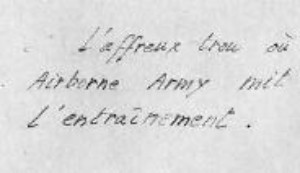 L'affreux trou où
Airborne Army mit
l'entraînement.